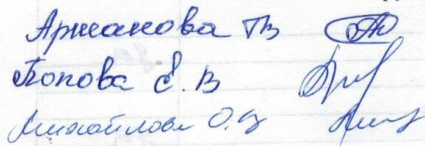 Аржакова ТВ
Попова Е.В
Михайлова О.